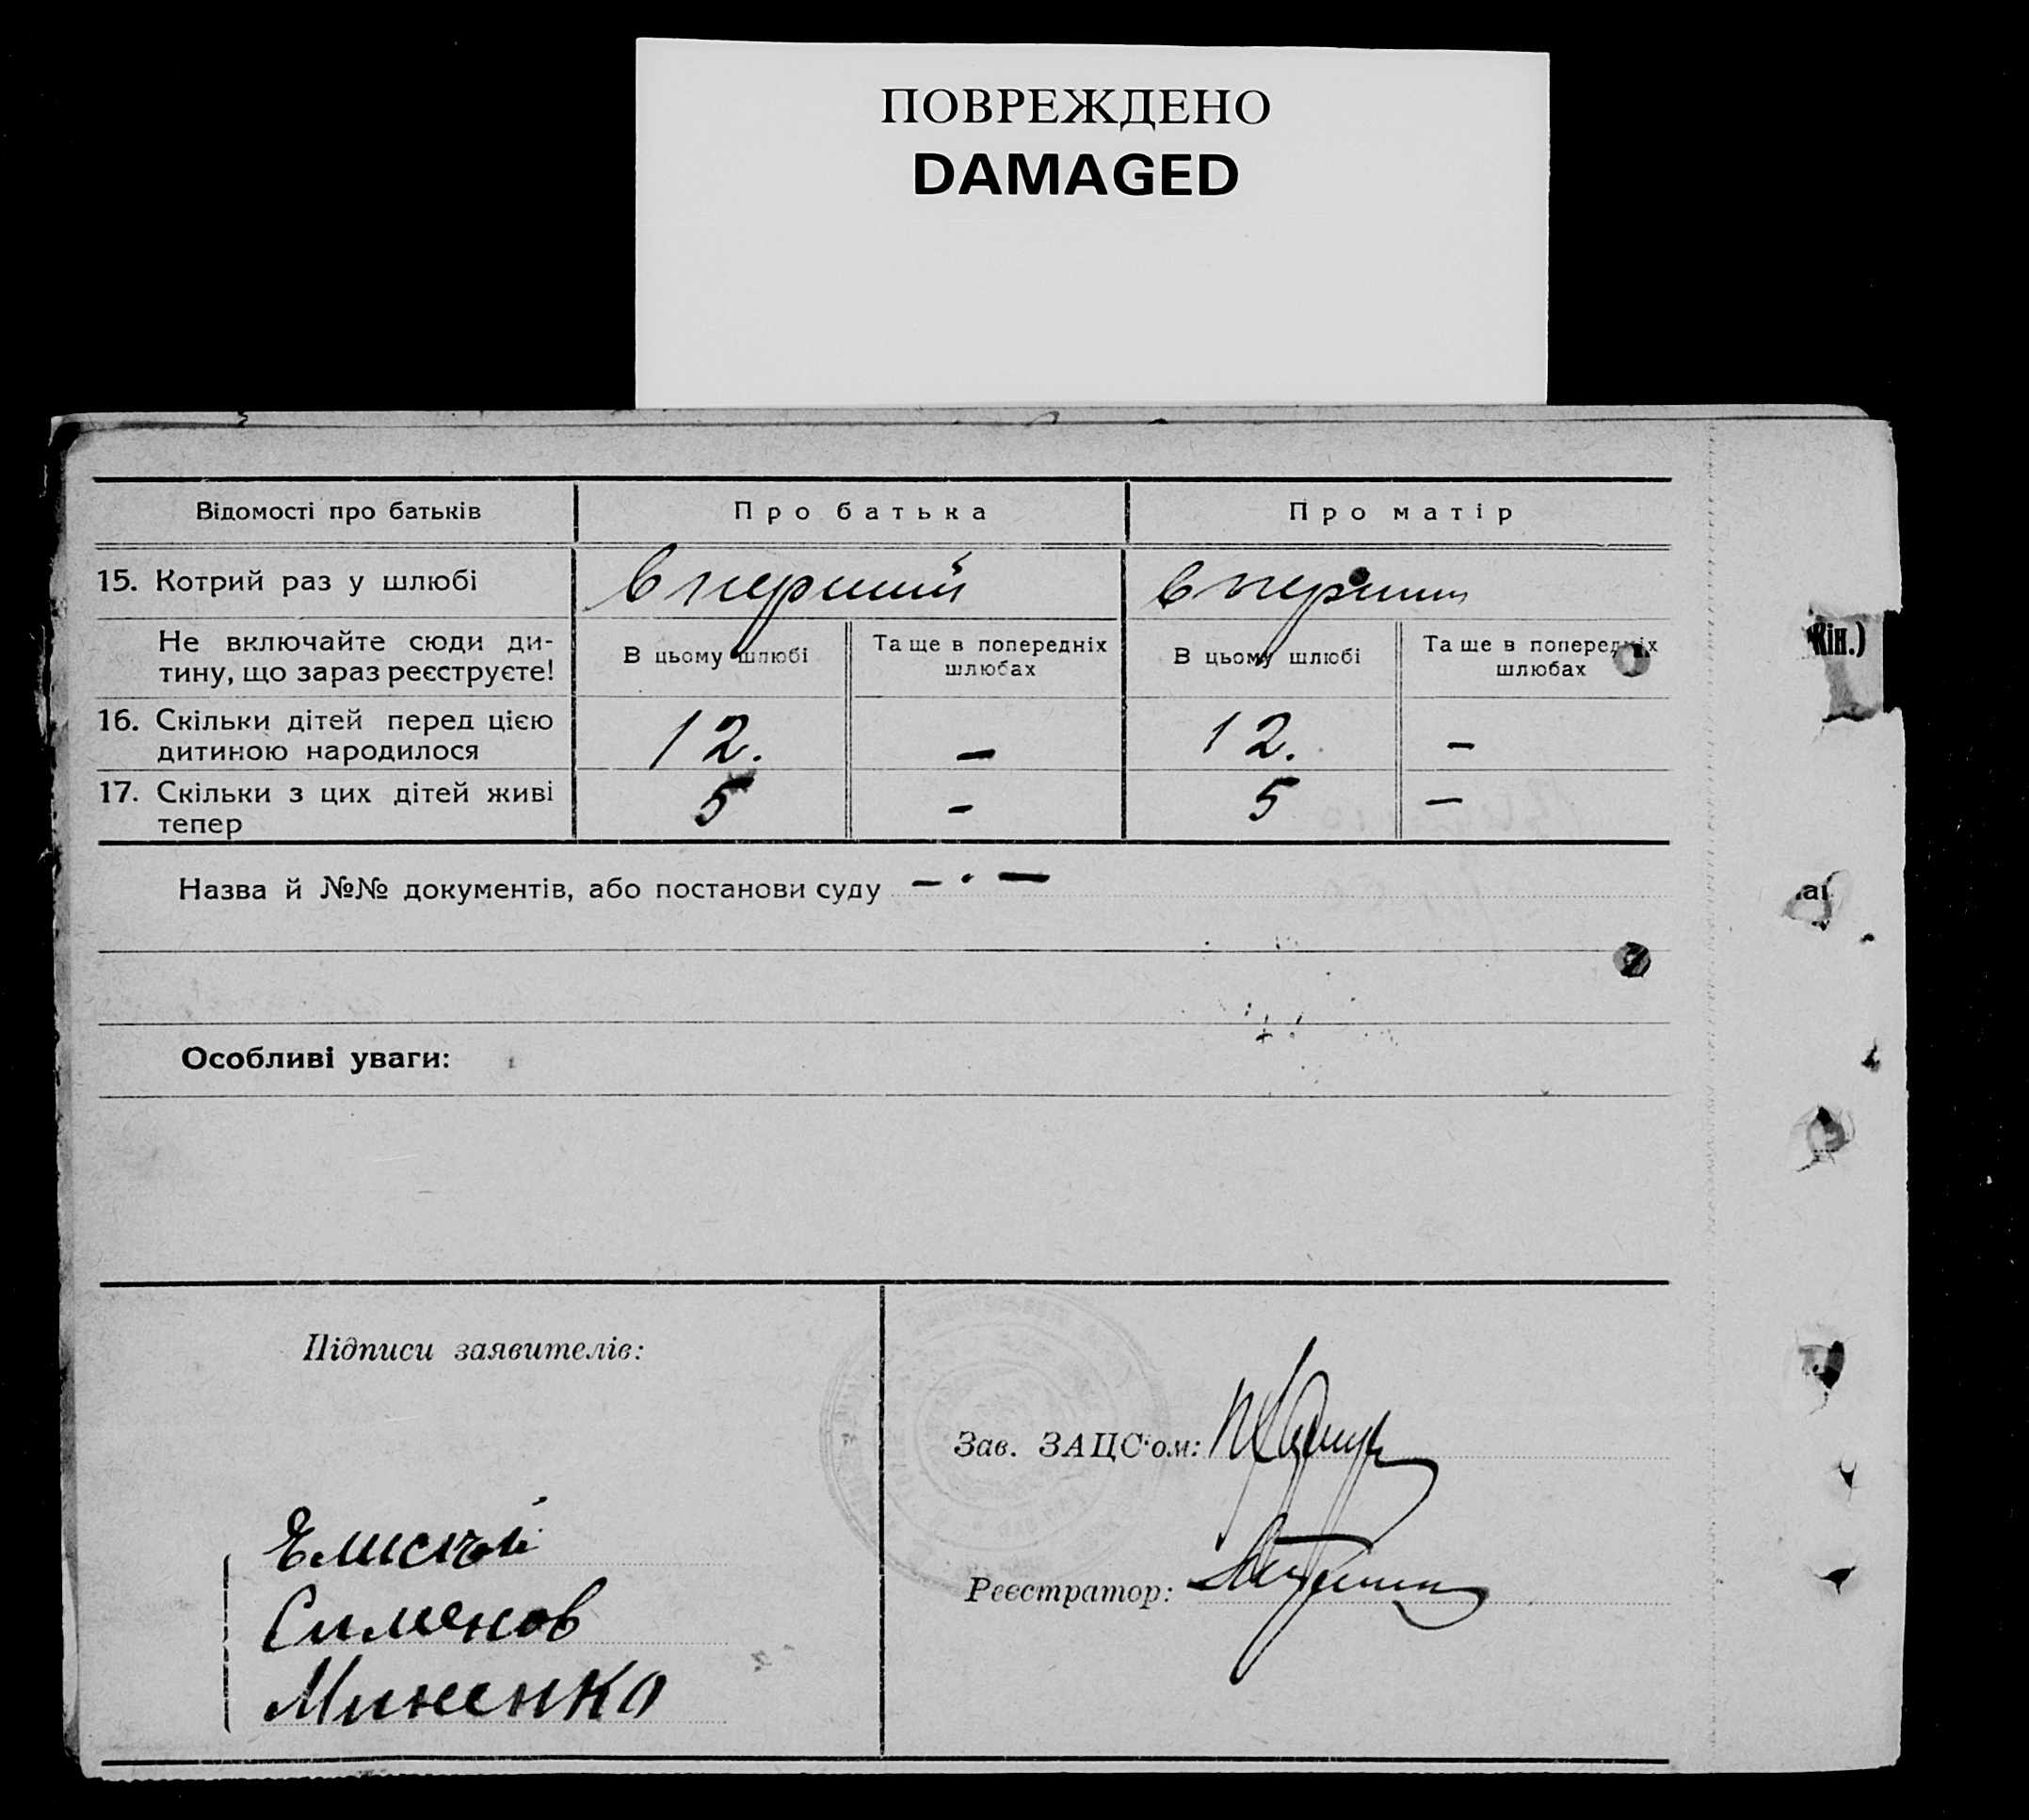 ПОВРЕЖДЕНО
DAMAGED
Відомості про батьків
Про батька
Про матір
15. Котрий раз у шлюбі
в перший
в перший
Не включайте сюди ди-
тину, що зараз реєструєте!
В цьому шлюбі
Та ще в попередніх
шлюбах
В цьому шлюбі
Та ще в попередніх
шлюбах
16. Скільки дітей перед цією
дитиною народилося
12.
—
12.
—
17. Скільки з цих дітей живі
тепер
5
—
5
—
Назва й №№ документів, або постанови суду — · —
Особливі уваги:
Підписи заявителів:
Сименов
Миненко
Зав. ЗАЦС'ом:
Реєстратор:
Кін.)